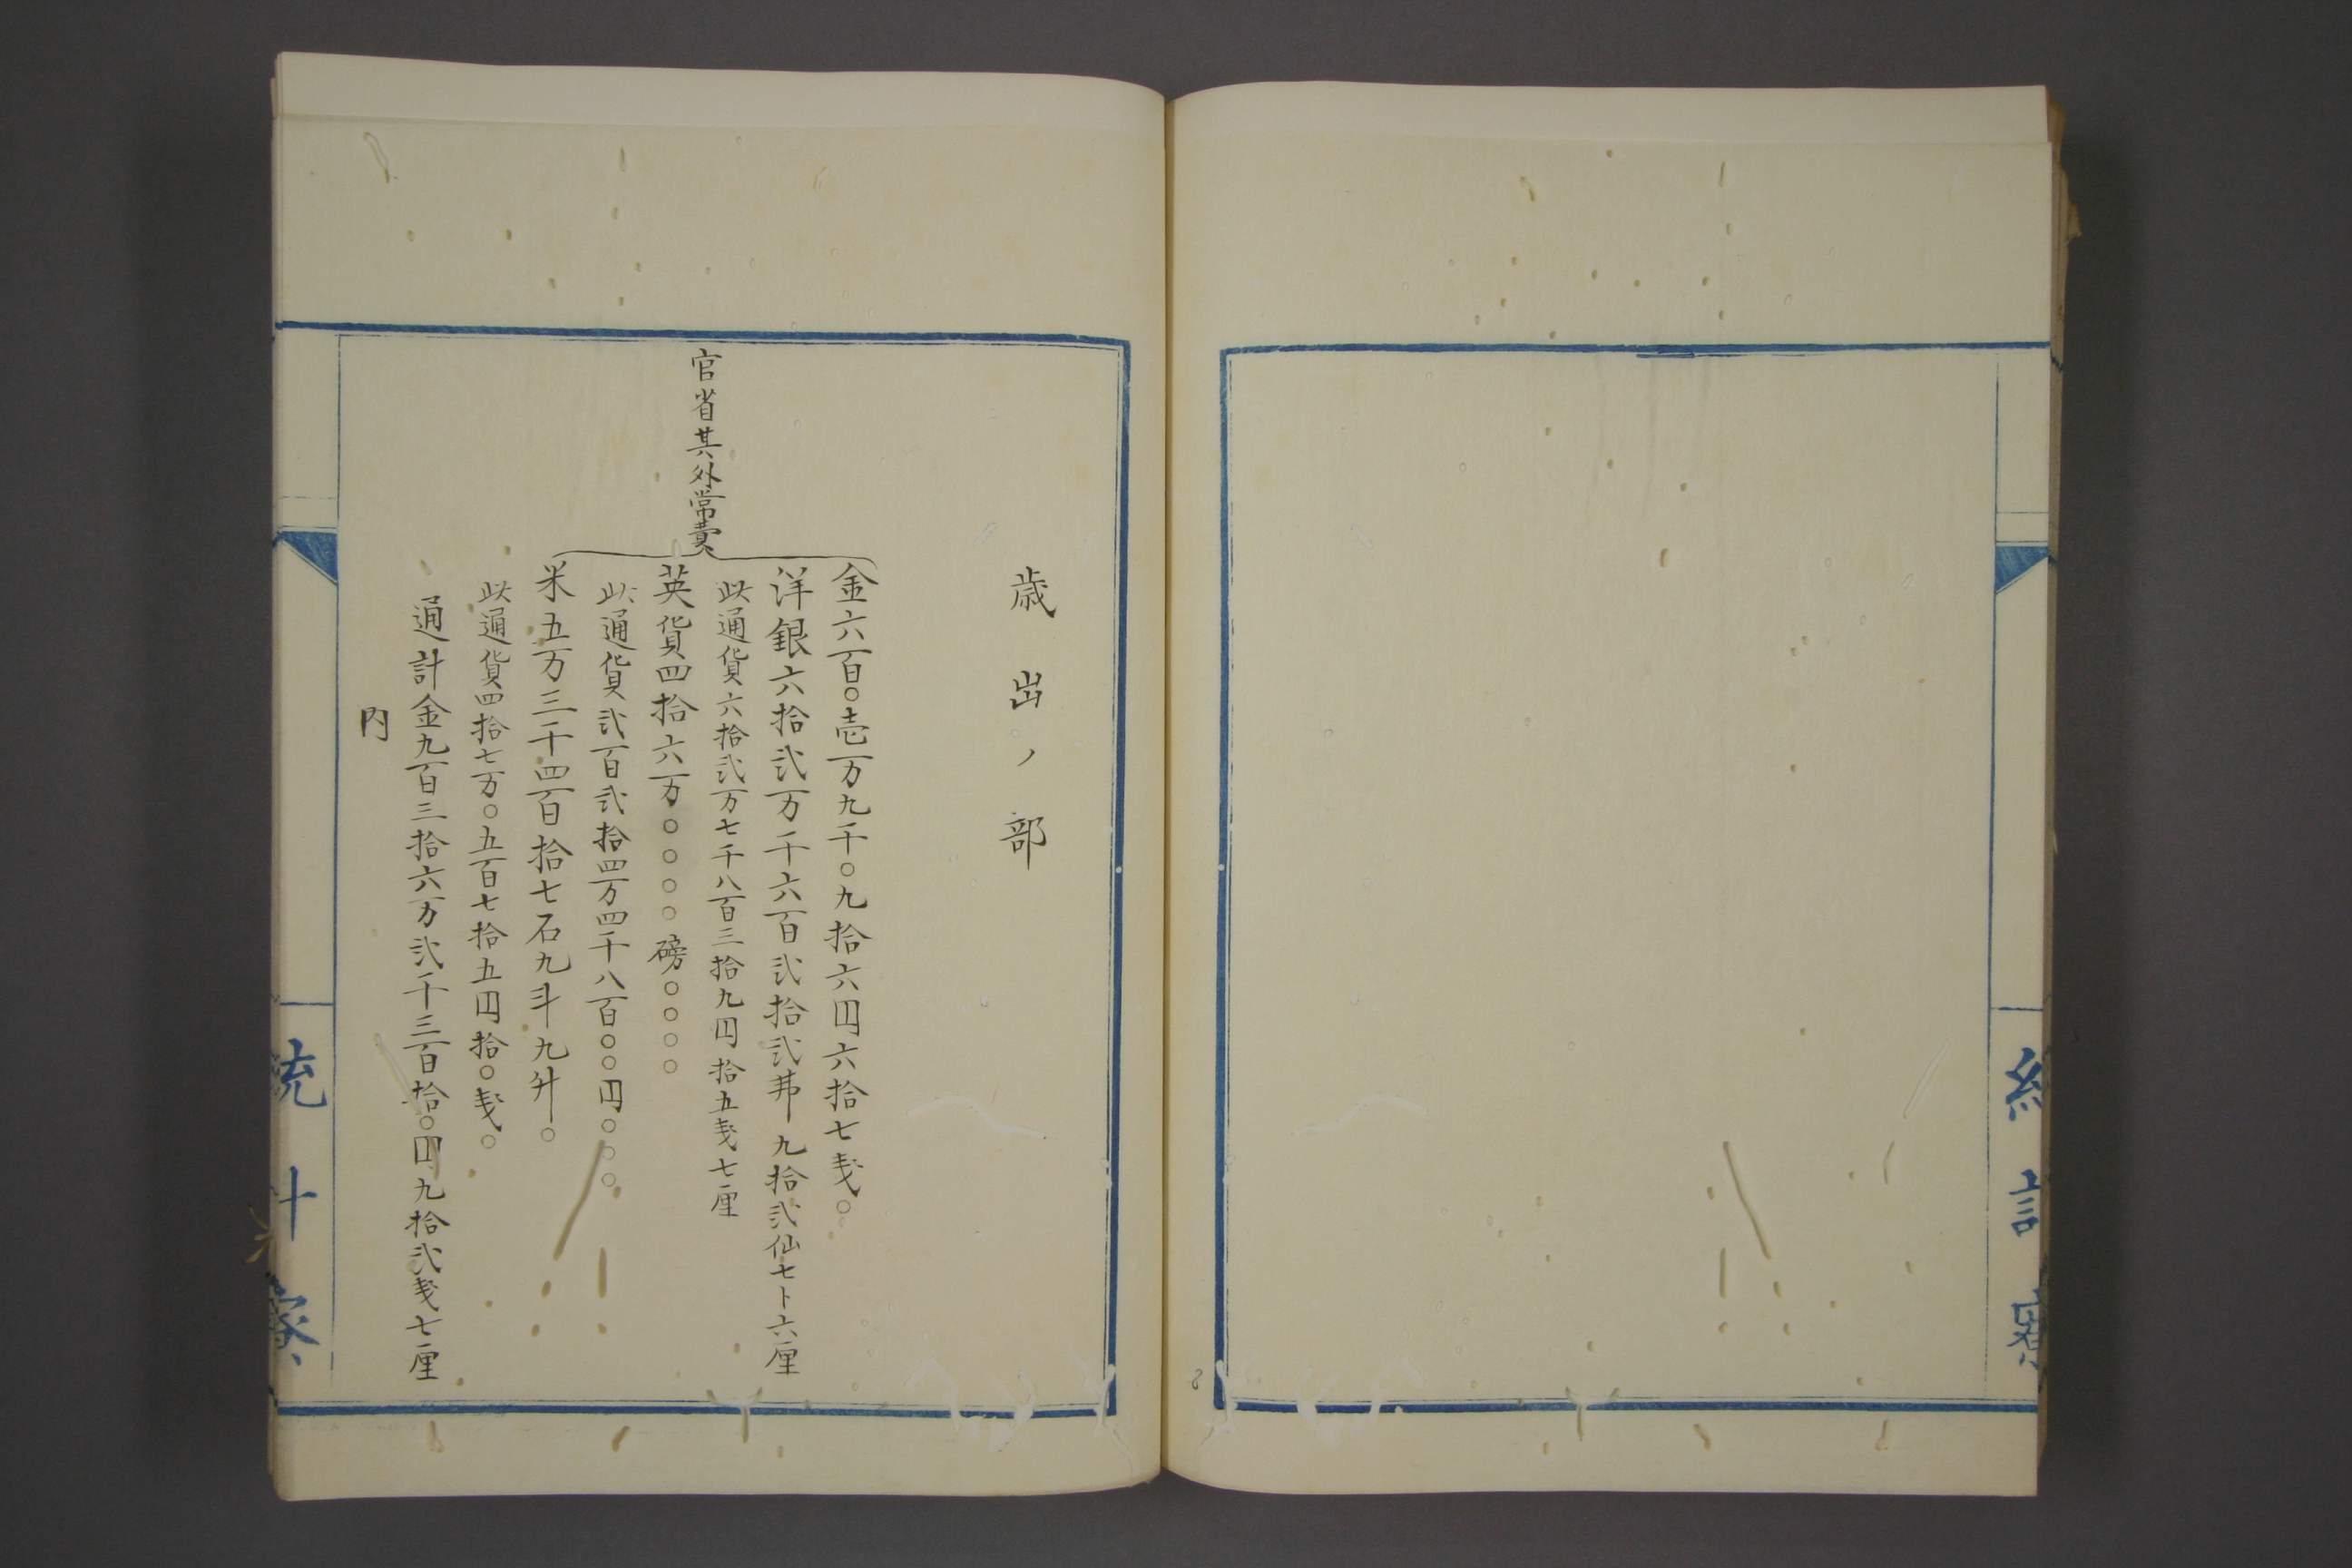 歳出ノ部
官省其外常費
金六百〇壱万九千〇九拾六円六拾七戔〇
洋銀六拾弐万千六百弐拾弐弗九拾弐仙七ト六厘
此通貨六拾弐万七千八百三拾九円拾五戔七厘
英貨四拾六万〇〇〇〇磅〇〇〇〇
此通貨弐百弐拾四万四千八百〇〇円〇〇〇
米五万三千四百拾七石九斗九升〇
此通貨四拾七万〇五百七拾五円拾〇戔〇
通計金九百三拾六万弐千三百拾〇円九拾弐戔七厘
内
統計寮